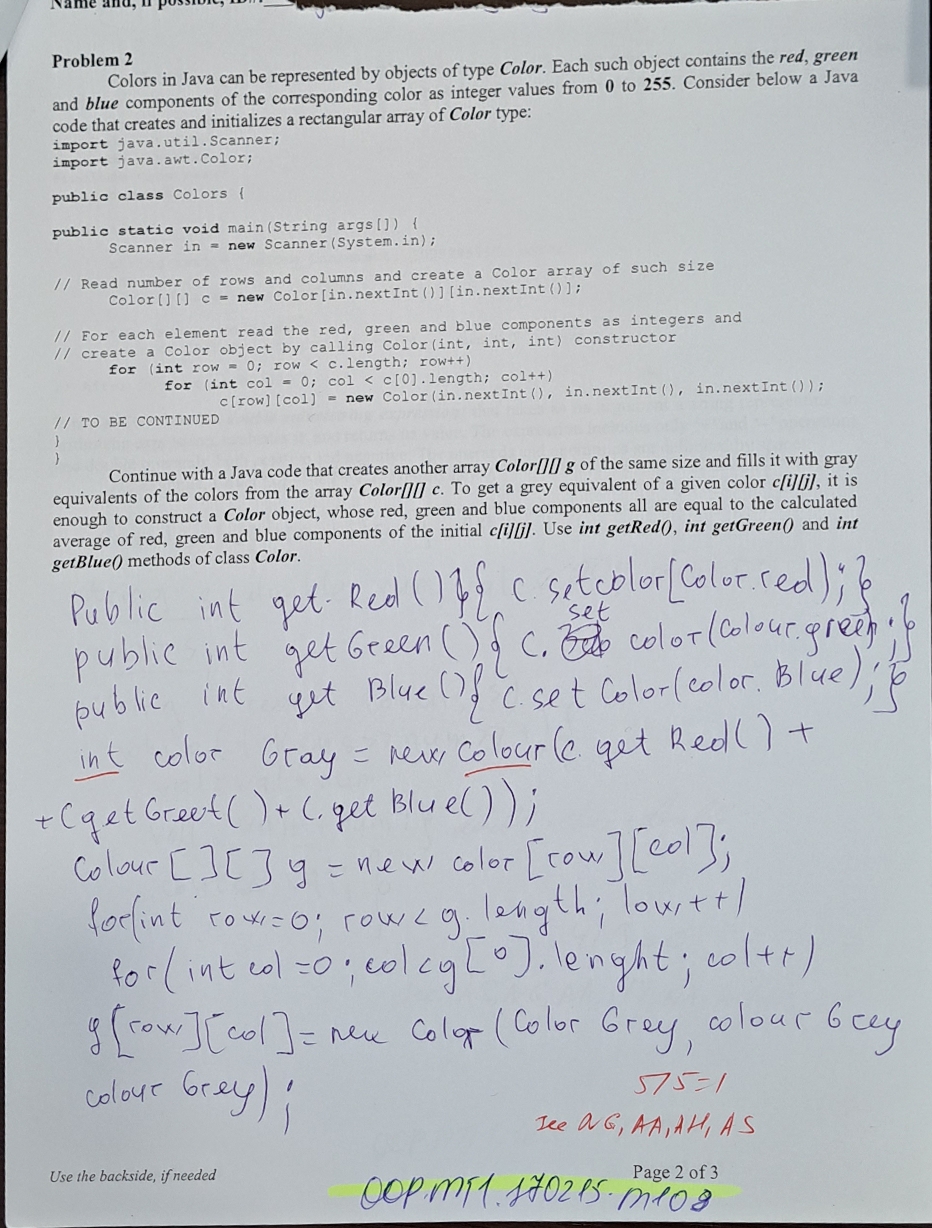 Name and, if possible, ID#:
Problem 2
Colors in Java can be represented by objects of type Color. Each such object contains the red, green
and blue components of the corresponding color as integer values from 0 to 255. Consider below a Java
code that creates and initializes a rectangular array of Color type:
import java.util.Scanner;
import java.awt.Color;
public class Colors {
public static void main(String args[]) {
Scanner in = new Scanner(System.in);
// Read number of rows and columns and create a Color array of such size
Color[][] c = new Color[in.nextInt()][in.nextInt()];
// For each element read the red, green and blue components as integers and
// create a Color object by calling Color(int, int, int) constructor
for (int row = 0; row < c.length; row++)
for (int col = 0; col < c[0].length; col++)
c[row][col] = new Color(in.nextInt(), in.nextInt(), in.nextInt());
// TO BE CONTINUED
}
}
Continue with a Java code that creates another array Color[][] g of the same size and fills it with gray
equivalents of the colors from the array Color[][] c. To get a grey equivalent of a given color c[i][j], it is
enough to construct a Color object, whose red, green and blue components all are equal to the calculated
average of red, green and blue components of the initial c[i][j]. Use int getRed(), int getGreen() and int
getBlue() methods of class Color.
Public int get Red () { c. setcolor[Color.red); }
set
public int getGreen () { c. color(Colour.green; }
public int get Blue () { c. set Color(color. Blue); }
int color Gray = new Colour (c. get Red() +
+ C get Greet() + C. get Blue());
Colour [ ] [ ] g = new color [row] [col];
for(int row=0; row < g. length; low++)
for(int col=0; col<g[0]. lenght; col++)
g[row][col] = new Color (Color Grey, colour Grey
colour Grey);
575=1
See AG, AA, AH, AS
Use the backside, if needed
Page 2 of 3
OOP.MT1.170215.M108